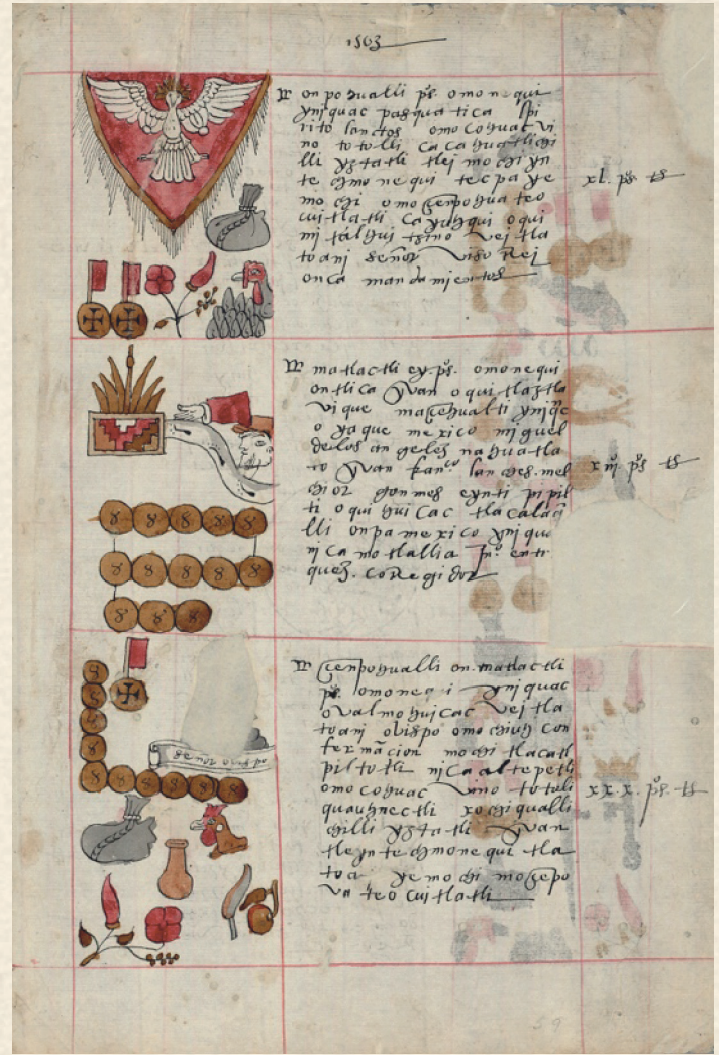 1563
onpohualli ps. omonequi
yniquac pasqua tica spi
rito sanctos omocohuac vi
no totolli cacahuatl chi
lli yztatli tlei mochi yn
techmonequi tecpa ye
mochi omocenpohua teo
cuitlatli ca yuhqui oqui
mitalhui tzino vei tla
toani señor viso Rei
onca mandamientos
xl. ps. ts
matlactli ey. ps. omonequi
ontlica yvan oquitlaxtla
vique macehualti yniqc
o yaque mexico miguel
de los angeles nahuatla
to yvan franco sanches. mel
chior gomes eynti pipil
ti oquihuicac tlacalaqi
lli onpa mexico yniquc
nica motlallia po. enri
quez. coRegidor
xiij ps ts
8 8 8 8 8
8 8 8 8 8
8 8 8
cenpohualli on.matlactli
ps. omoneqi yniquac
ovalmohuicac vei tla
toani obispo omochiuh con
fermacion mochi tlacatl
piltotli nica altepetli
omocohuac vino totoli
quauhnectli xochiqualli
chilli yztatli yvan
tle yn techmonequi tla
toa ye mochi mocepo
va teocuitlatli
xx.x. ps. ts
señor obispo
8
8
8
8
8 8 8 8 8 8
59